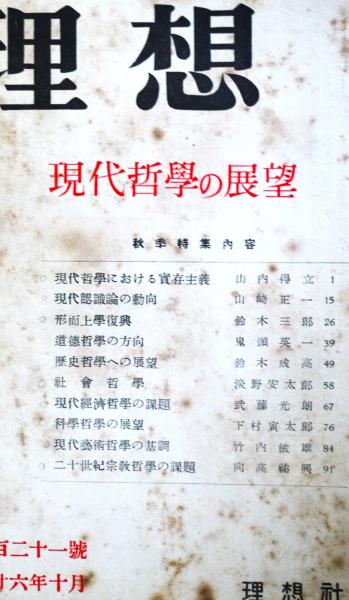 理想
現代哲學の展望
秋季特集內容
現代哲學における實存主義 山內得立 1
現代認識論の動向 山崎正一 15
形而上學復興 鈴木三郎 26
道德哲學の方向 鬼頭英一 39
歷史哲學への展望 鈴木成高 49
社會哲學 淡野安太郎 58
現代經濟哲學の課題 武藤光朗 67
科學哲學の展望 下村寅太郎 76
現代藝術哲學の基調 竹內敏雄 84
二十世紀宗敎哲學の課題 向高祐興 91
百二十一號
廿六年十月
理想社